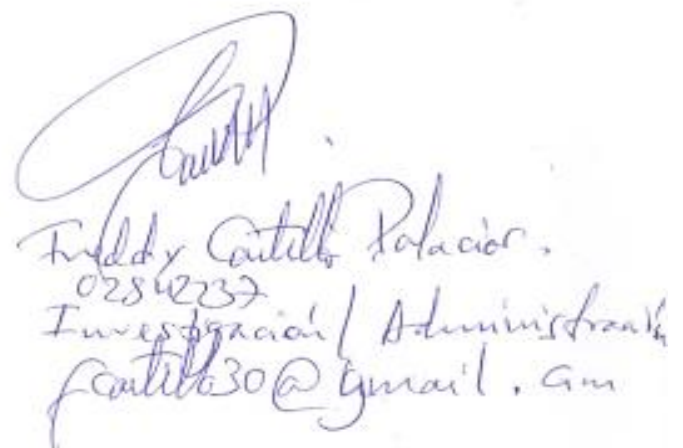 Freddy Castillo Palacios.
02842237
Investigación / Administración
fcastillo30@gmail.com